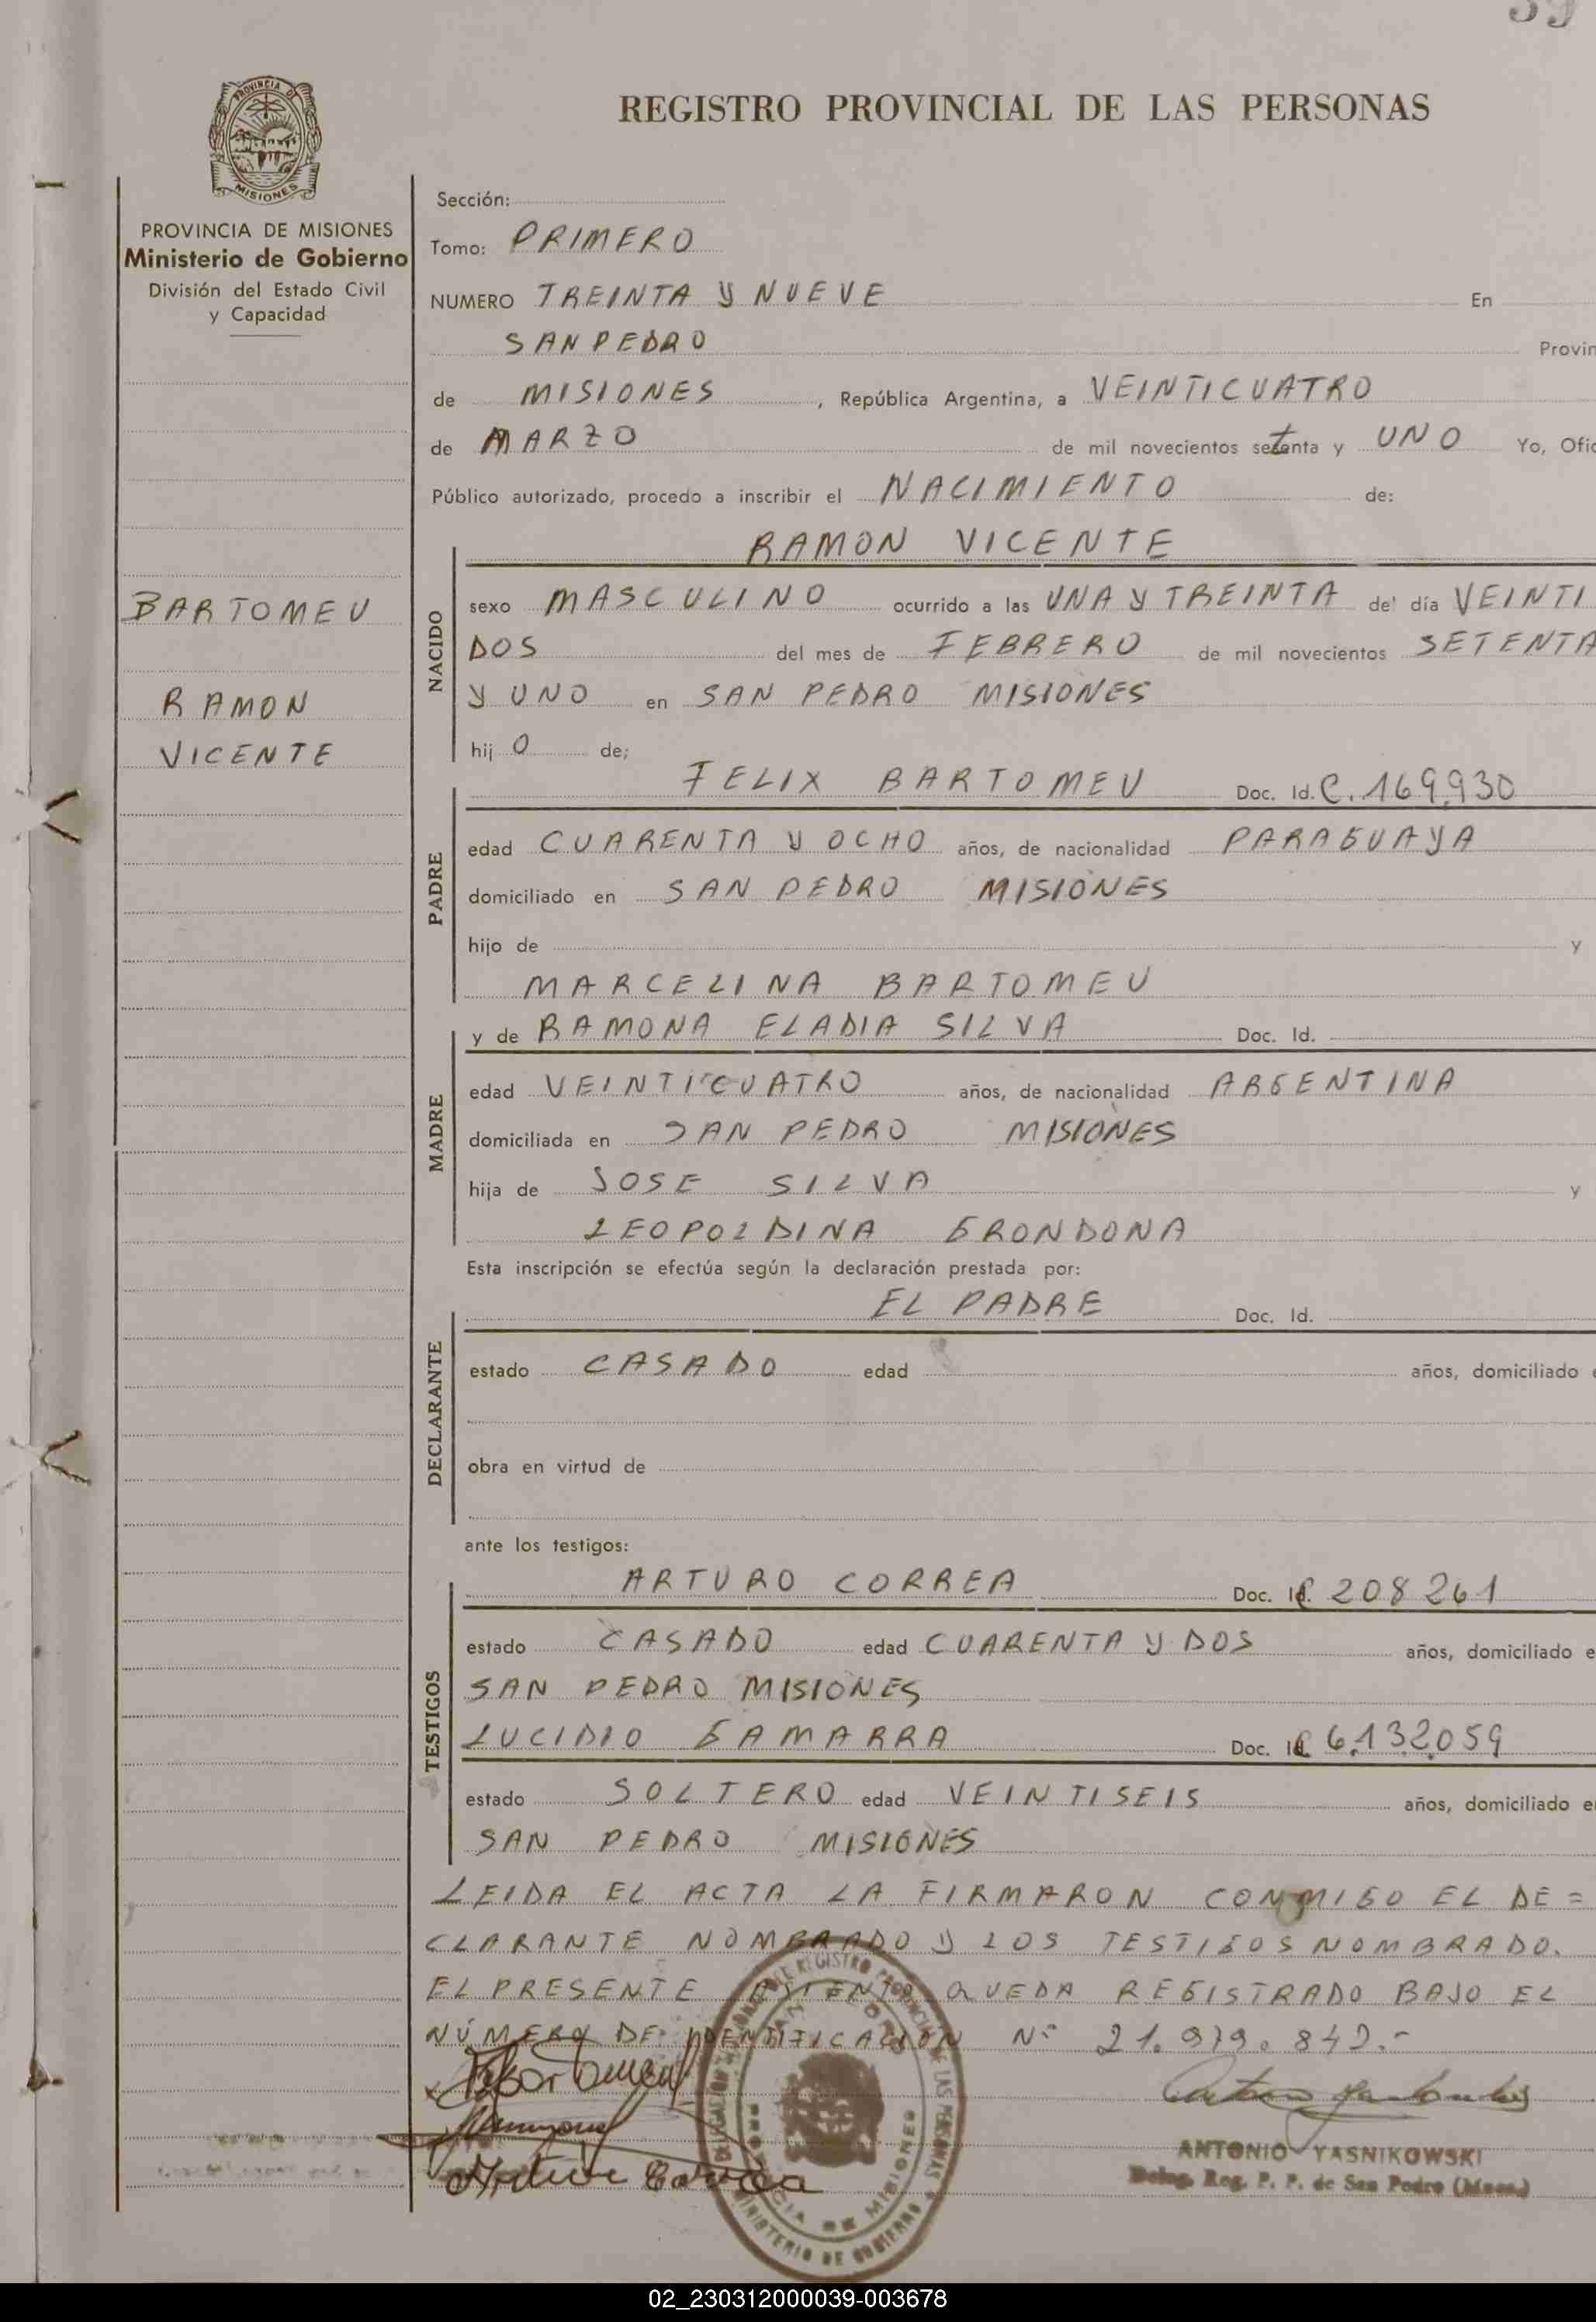 39
PROVINCIA DE
MISIONES
REGISTRO PROVINCIAL DE LAS PERSONAS
PROVINCIA DE MISIONES
Ministerio de Gobierno
División del Estado Civil
y Capacidad
BARTOMEU
RAMON
VICENTE
Sección:
Tomo: PRIMERO
NUMERO TREINTA Y NUEVE En
SAN PEDRO Provin
de MISIONES, República Argentina, a VEINTICUATRO
de MARZO de mil novecientos setenta y UNO Yo, Ofic
Público autorizado, procedo a inscribir el NACIMIENTO de:
RAMON VICENTE
NACIDO
sexo MASCULINO ocurrido a las UNA Y TREINTA del día VEINTI
DOS del mes de FEBRERO de mil novecientos SETENTA
Y UNO en SAN PEDRO MISIONES
hij O de;
FELIX BARTOMEU Doc. Id. C. 169.930
PADRE
edad CUARENTA Y OCHO años, de nacionalidad PARAGUAYA
domiciliado en SAN PEDRO MISIONES
hijo de y
MARCELINA BARTOMEU
y de RAMONA ELADIA SILVA Doc. Id.
MADRE
edad VEINTICUATRO años, de nacionalidad ARGENTINA
domiciliada en SAN PEDRO MISIONES
hija de JOSE SILVA y
LEOPOLDINA GRONDONA
Esta inscripción se efectúa según la declaración prestada por:
EL PADRE Doc. Id.
DECLARANTE
estado CASADO edad años, domiciliado e
obra en virtud de
ante los testigos:
ARTURO CORREA Doc. Id. 208261
TESTIGOS
estado CASADO edad CUARENTA Y DOS años, domiciliado e
SAN PEDRO MISIONES
LUCIDIO GAMARRA Doc. Id. 6.132.059
estado SOLTERO edad VEINTISEIS años, domiciliado en
SAN PEDRO MISIONES
LEIDA EL ACTA LA FIRMARON CONMIGO EL DE=
CLARANTE NOMBRADO Y LOS TESTIGOS NOMBRADO.
EL PRESENTE ASIENTO QUEDA REGISTRADO BAJO EL
NÚMERO DE IDENTIFICACION Nº 21.979.842.-
Arturo Correa
ANTONIO YASNIKOWSKI
Deleg. Reg. P. P. de San Pedro (Mnes.)
PROVINCIA DE MISIONES
MINISTERIO DE GOBIERNO
02_230312000039-003678